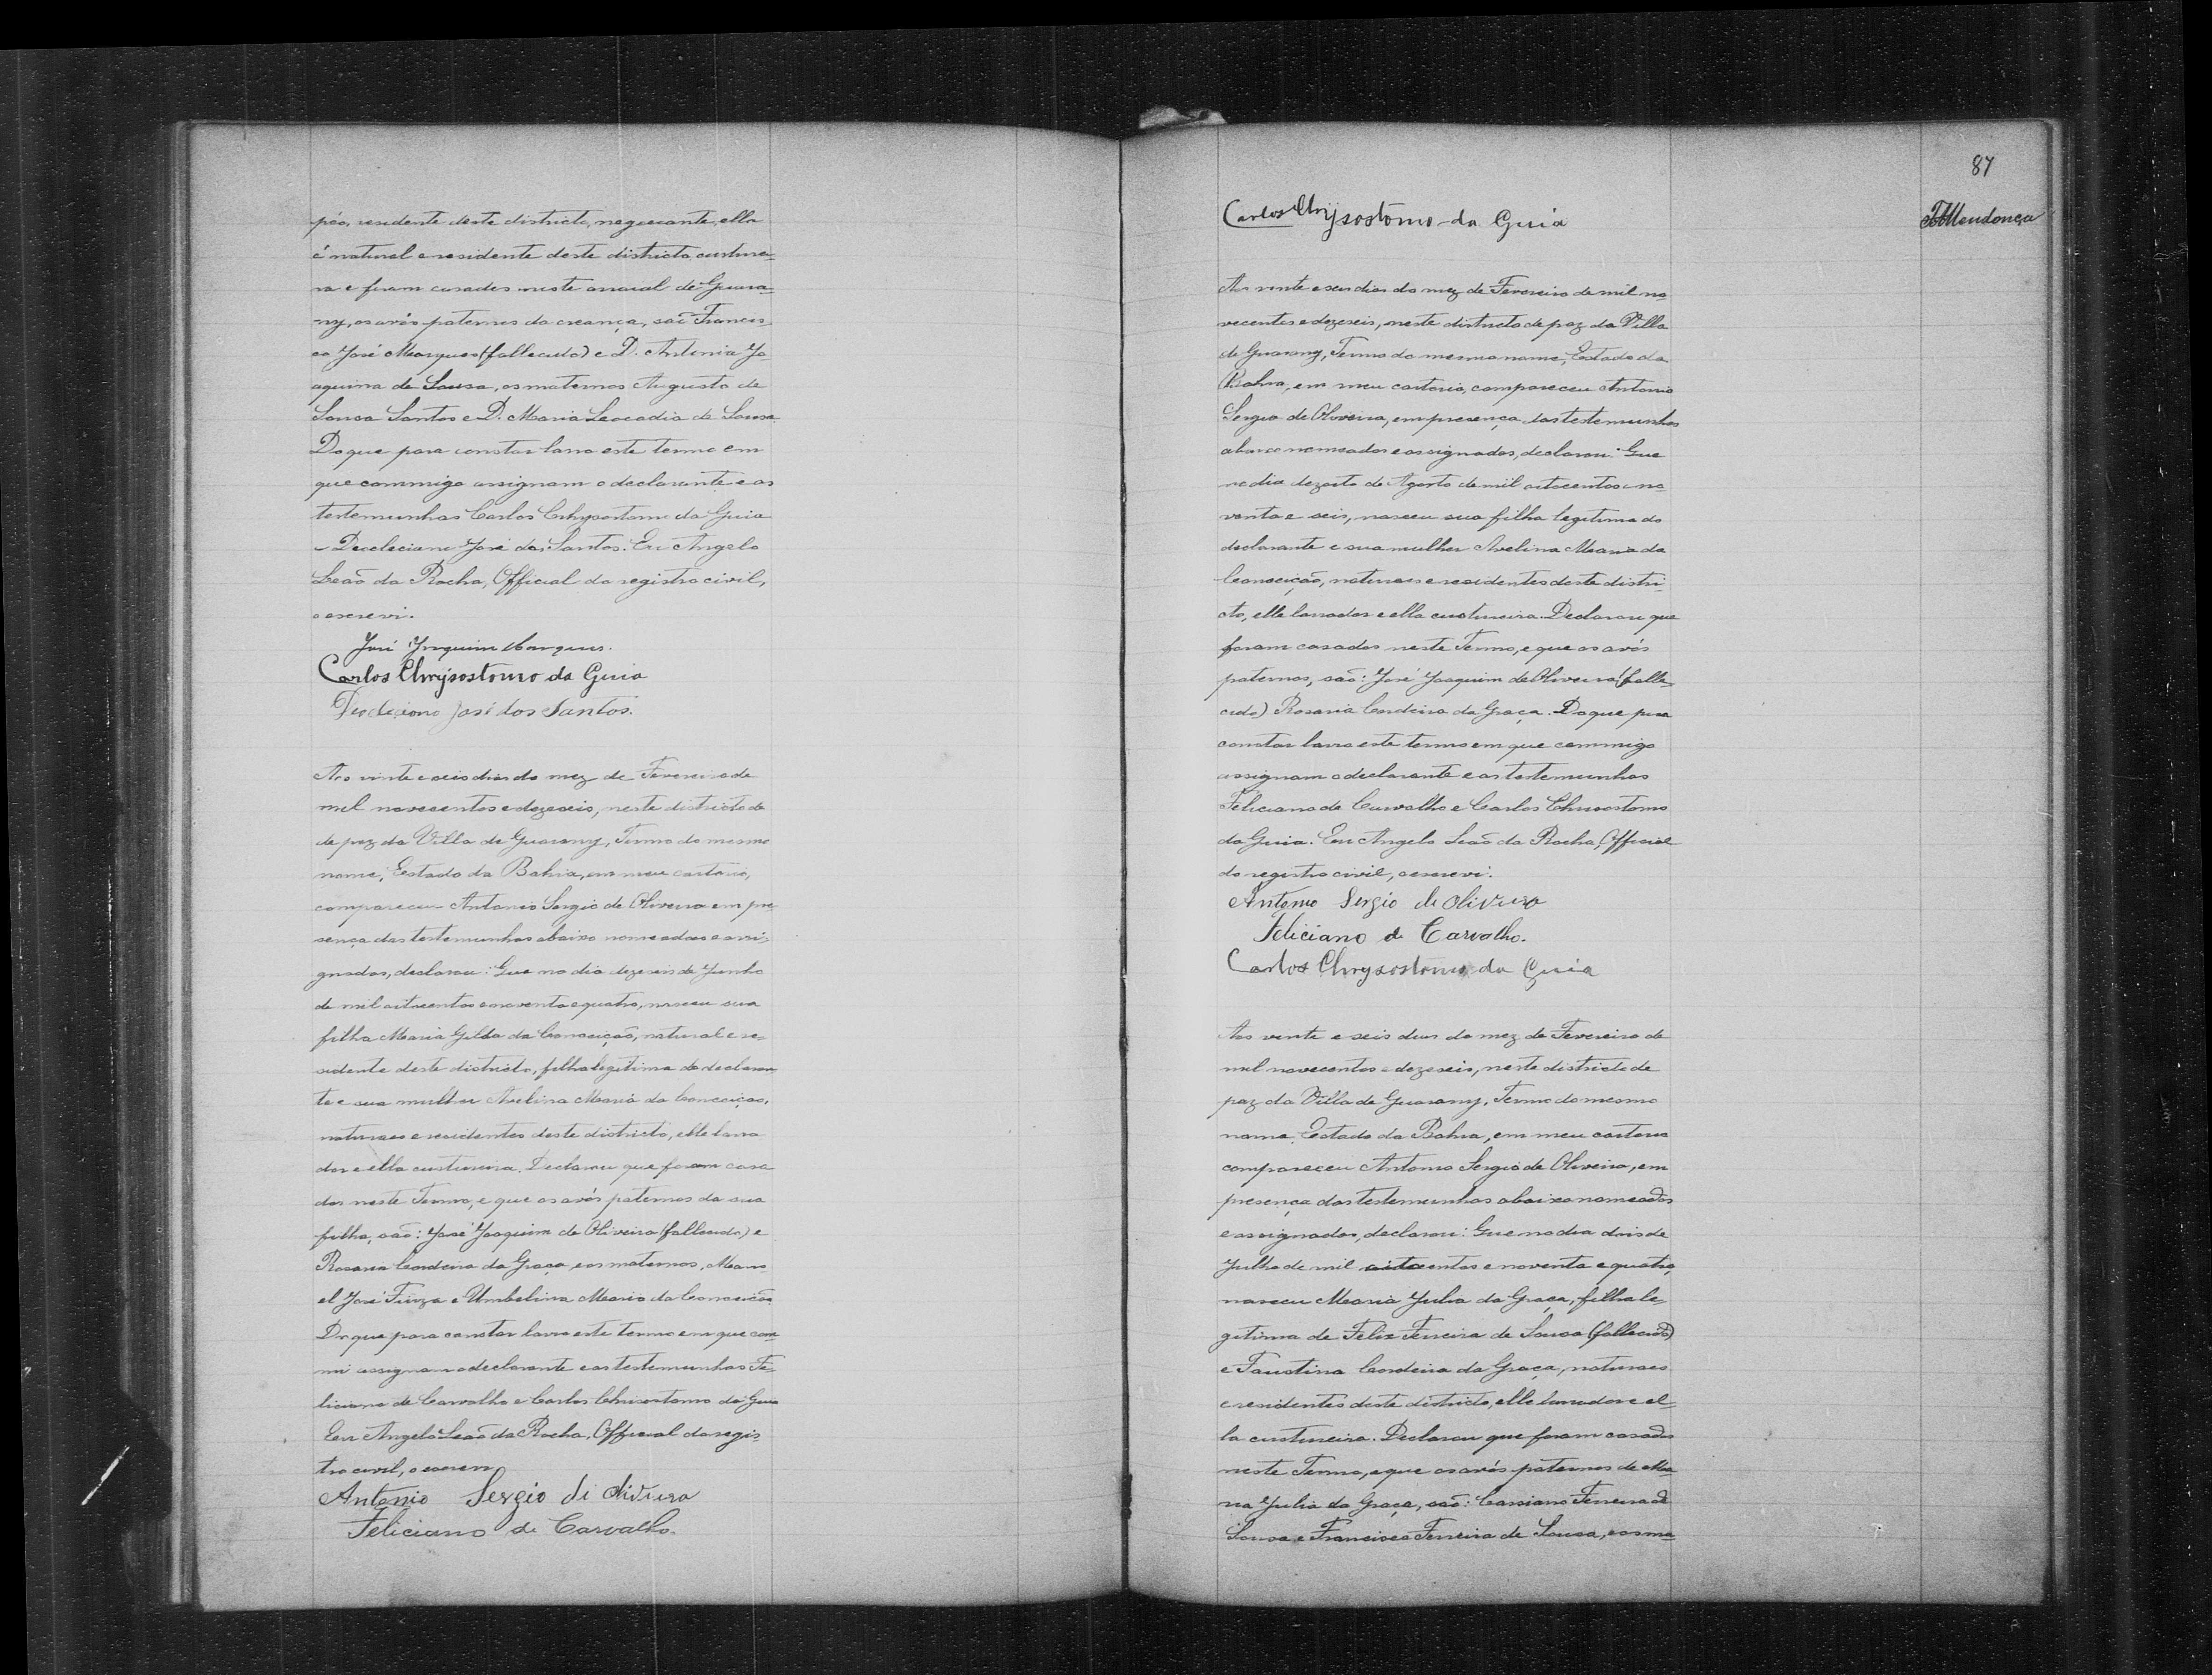 péo, residente deste districto, negociante, ella
é natural e residente deste districto, custurei-
ra e foram casados neste arraial de Guara-
ny, os avós paternos da creança, saõ Francis-
co José Marques (fallecido) e D. Antonia Jo-
aquina de Sousa, os maternos Augusto de
Sousa Santos e D. Maria Leocadia de Sousa.
Do que para constar lavro este termo em
que commigo assignam o declarante e as
testemunhas Carlos Chrysostomo da Guia
e Deocleciano José dos Santos. Eu Angelo
Leaõ da Rocha, Official do registro civil,
o escrevi.
José Joaquim Marques.
Carlos Chrysostomo da Guia
Deocleciano José dos Santos.
Aos vinte e seis dias do mez de Fevereiro de
mil novecentos e dezeseis, neste districto de
de paz da Villa de Guarany, Termo do mesmo
nome, Estado da Bahia, em meu cartorio,
compareceu Antonio Sergio de Oliveira em pre-
sença das testemunhas abaixo nomeadas e assi-
gnadas, declarou: Que no dia dezeseis de Junho
de mil oitocentos e noventa e quatro, nasceu sua
filha Maria Gilda da Conceiçaõ, natural e re-
sidente deste districto, filha legitima do declaran-
te e sua mulher Avelina Maria da Conceiçaõ,
naturaes e residentes deste districto, elle lavra
dor e ella custureira. Declarou que foram casa
dos neste Termo, e que os avós paternos da sua
filha, saõ: José Joaquim de Oliveira (fallecido) e
Rosaria Cordeira da Graça e os maternos, Mano-
el José Fiuza e Umbelina Maria da Conceiçaõ
Do que para constar lavro este termo em que com
mi assignam o declarante e as testemunhas Fe-
liciano de Carvalho e Carlos Chrisostomo da Guia
Eu Angelo Leaõ da Rocha, Official do regis-
tro civil, o escrevi
Antonio Sergio di Oliveira
Feliciano de Carvalho.
87
Carlos Chrysostomo da Guia
TMendonça
Aos vinte e seis dias do mez de Fevereiro de mil no
vecentos e dezeseis, neste districto de paz da Villa
de Guarany, Termo do mesmo nome, Estado da
Bahia, em meu cartorio, compareceu Antonio
Sergio de Oliveira, em presença das testemunhas
abaixo nomeadas e assignadas, declarou: Que
no dia dezoito de Agosto de mil oitocentos e no-
venta e seis, nasceu sua filha legitima do
declarante e sua mulher Avelina Maria da
Conceiçaõ, naturaes e residentes deste distri-
cto, elle lavrador e ella custureira. Declarou que
foram casados neste Termo, e que os avós
paternos, saõ: José Joaquim de Oliveira (falle-
cido) Rosaria Cordeira da Graça. Do que para
constar lavro este termo em que commigo
assignam o declarante e as testemunhas
Feliciano de Carvalho e Carlos Chrisostomo
da Guia. Eu Angelo Leaõ da Rocha, Official
do registro civil, o escrevi.
Antonio Sergio di Oliveira
Feliciano de Carvalho.
Carlos Chrysostomo da Guia
Aos vinte e seis dias do mez de Fevereiro de
mil novecentos e dezeseis, neste districto de
paz da Villa de Guarany, Termo do mesmo
nome, Estado da Bahia, em meu cartorio
compareceu Antonio Sergio de Oliveira, em
presença das testemunhas abaixo nomeadas
e assignadas, declarou: Que no dia dois de
Julho de mil oitocentos e noventa e quatro,
nasceu Maria Julia da Graça, filha le-
gitima de Felix Ferreira de Sousa (fallecido)
e Faustina Cordeira da Graça, naturaes
e residentes deste districto, elle lavrador e el-
la custureira. Declarou que foram casados
neste Termo, e que os avós paternos de Ma
ria Julia da Graça, saõ: Cassiano Ferreira de
Sousa e Francisca Ferreira de Sousa, e os ma-